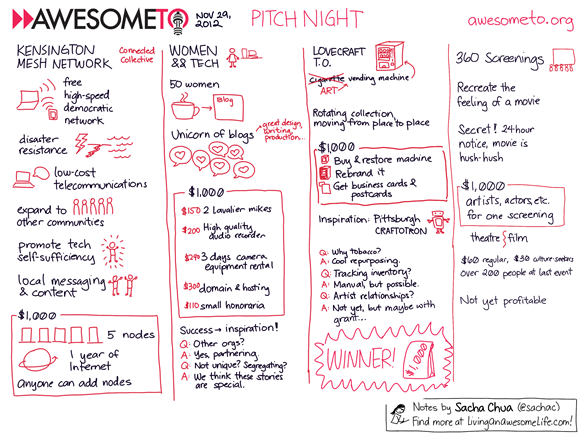 AWESOMETO
NOV 29,
2012
PITCH NIGHT
awesometo.org
KENSINGTON
MESH NETWORK
Connected
Collective
free
high-speed
democratic
network
disaster
resistance
low-cost
telecommunications
expand to
other communities
promote tech
self-sufficiency
local messaging
& content
$1,000
5 nodes
1 year of
Internet
Anyone can add nodes
WOMEN
&& TECH
50 women
Blog
Unicorn of blogs
great design,
writing,
production...
$1,000
$150 2 Lavalier mikes
$200 High quality
audio recorder
$240 3 days camera
equipment rental
$300 domain & hosting
$110 small honoraria
Success → inspiration!
Q: Other orgs?
A: Yes, partnering.
Q: Not unique? Segregating?
A: We think these stories
are special.
LOVECRAFT
T.O.
Cigarette vending machine
ART
Rotating collection,
moving from place to place
$1,000
Buy & restore machine
Rebrand it
Get business cards &
postcards
Inspiration: Pittsburgh
CRAFTOTRON
Q: Why tobacco?
A: Cool repurposing.
Q: Tracking inventory?
A: Manual, but possible.
Q: Artist relationships?
A: Not yet, but maybe with
grant...
WINNER!
$1,000
360 Screenings
Recreate the
feeling of a movie
Secret! 24-hour
notice, movie is
hush-hush
$1,000
artists, actors, etc.
for one screening
theatre } film
$60 regular, $30 culture-seekers
Over 200 people at last event
Not yet profitable
Notes by Sacha Chua (@sachac)
Find more at LivingAnAwesomeLife.com!